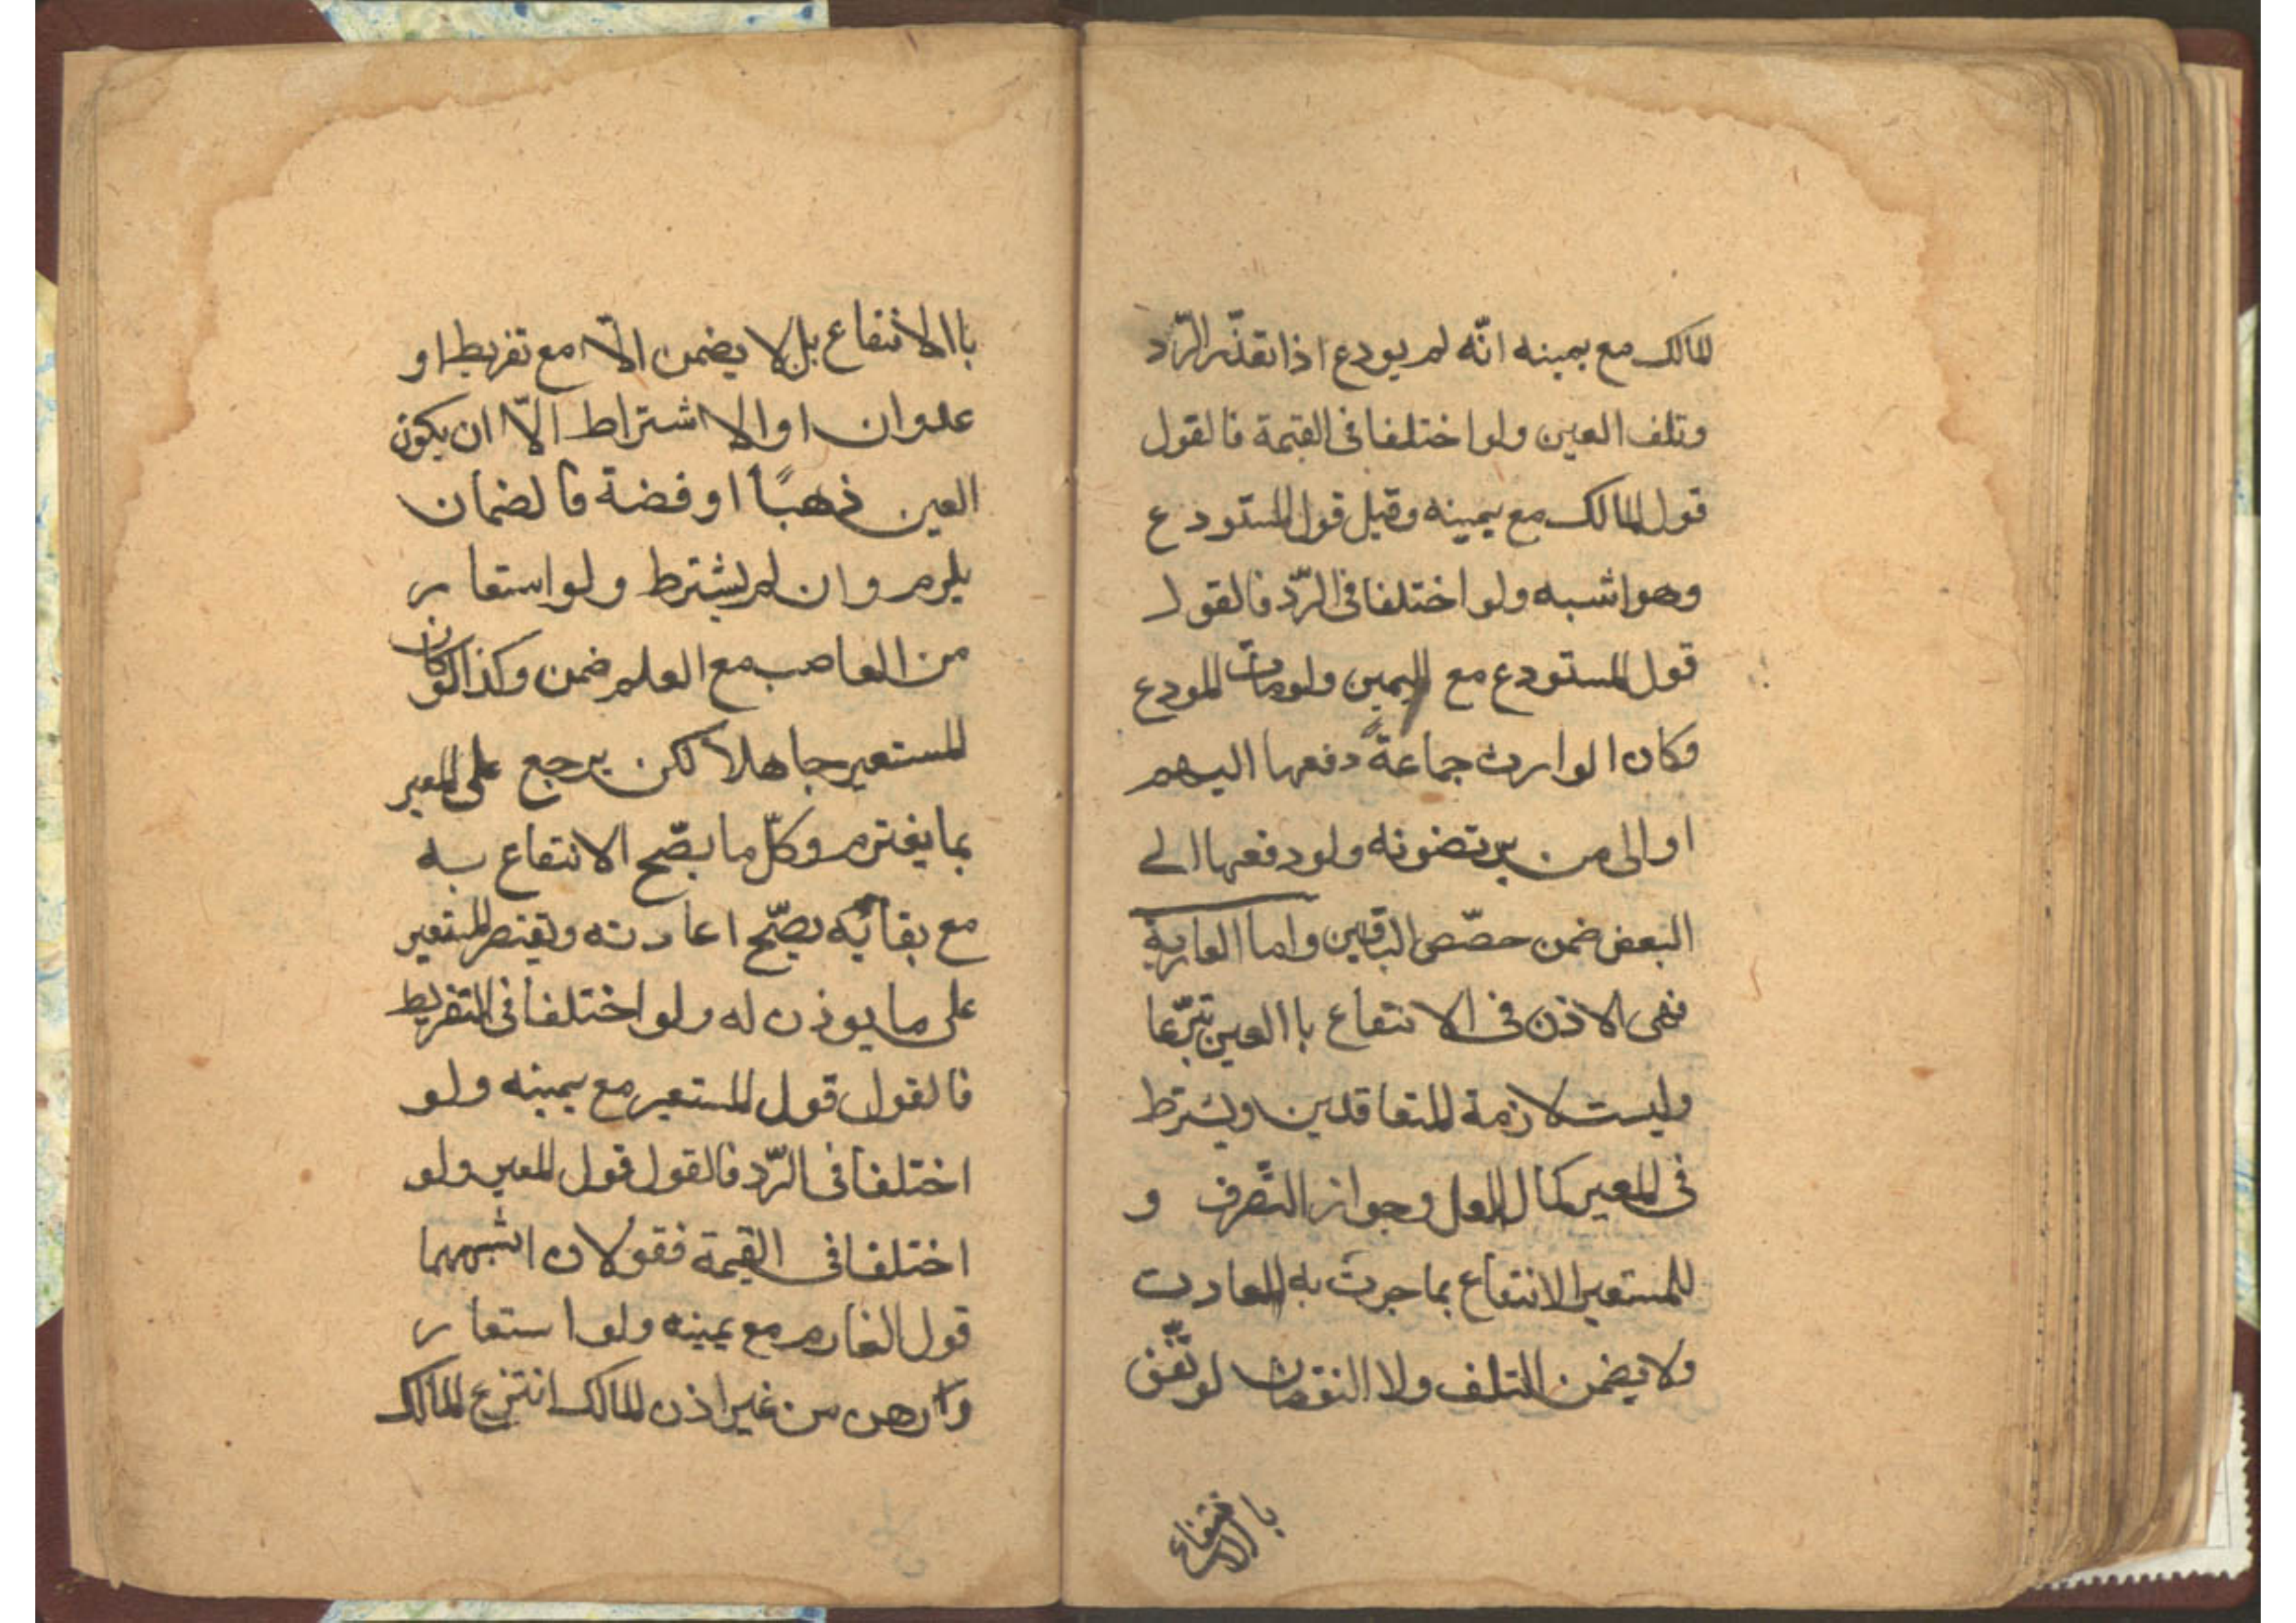 المالك مع يمينه انّه لم يودع اذا تعذّر الرّد
وتلف العين ولو اختلفا فى القيمة فالقول
قول المالك مع يمينه وقيل قول المستودع
وهو اشبه ولو اختلفا فى الرّد فالقول
قول المستودع مع اليمين ولو مات المودع
وكان الوارث جماعةً دفعها اليهم
او الى من يرتضونه ولو دفعها الى
البعض ضمن حصّص الباقين واما العارية
فهى الاذن فى الانتفاع باالعين تبّرعا
وليست لازمة للمتعاقدين ويشترط
فى المعير كمال العقل وجواز التّصرف و
للمستعير الانتفاع بما جرت به العادت
ولا يضمن التلف ولا النقصان لو اتّفق
باالانتفاع
باالانتفاع بل لا يضمن الّا مع تفريط او
عدوان او الاشتراط الّا ان يكون
العين ذهبًا او فضة فالضمان
يلزم وان لم يشترط ولو استعار
من الغاصب مع العلم ضمن وكذا لو كان
المستعير جاهلا لكن يرجع على المعير
بما يغترم وكلّ ما يصّح الانتفاع به
مع بقائه يصّح اعارته ويقتصر المستعير
على ما يوذن له ولو اختلفا فى التفريط
فالقول قول المستعير مع يمينه ولو
اختلفا فى الرّد فالقول قول المعير ولو
اختلفا فى القيمة فقولان اشبههما
قول الغارم مع يمينه ولو استعار
وارهن من غير اذن المالك انتزع المالك